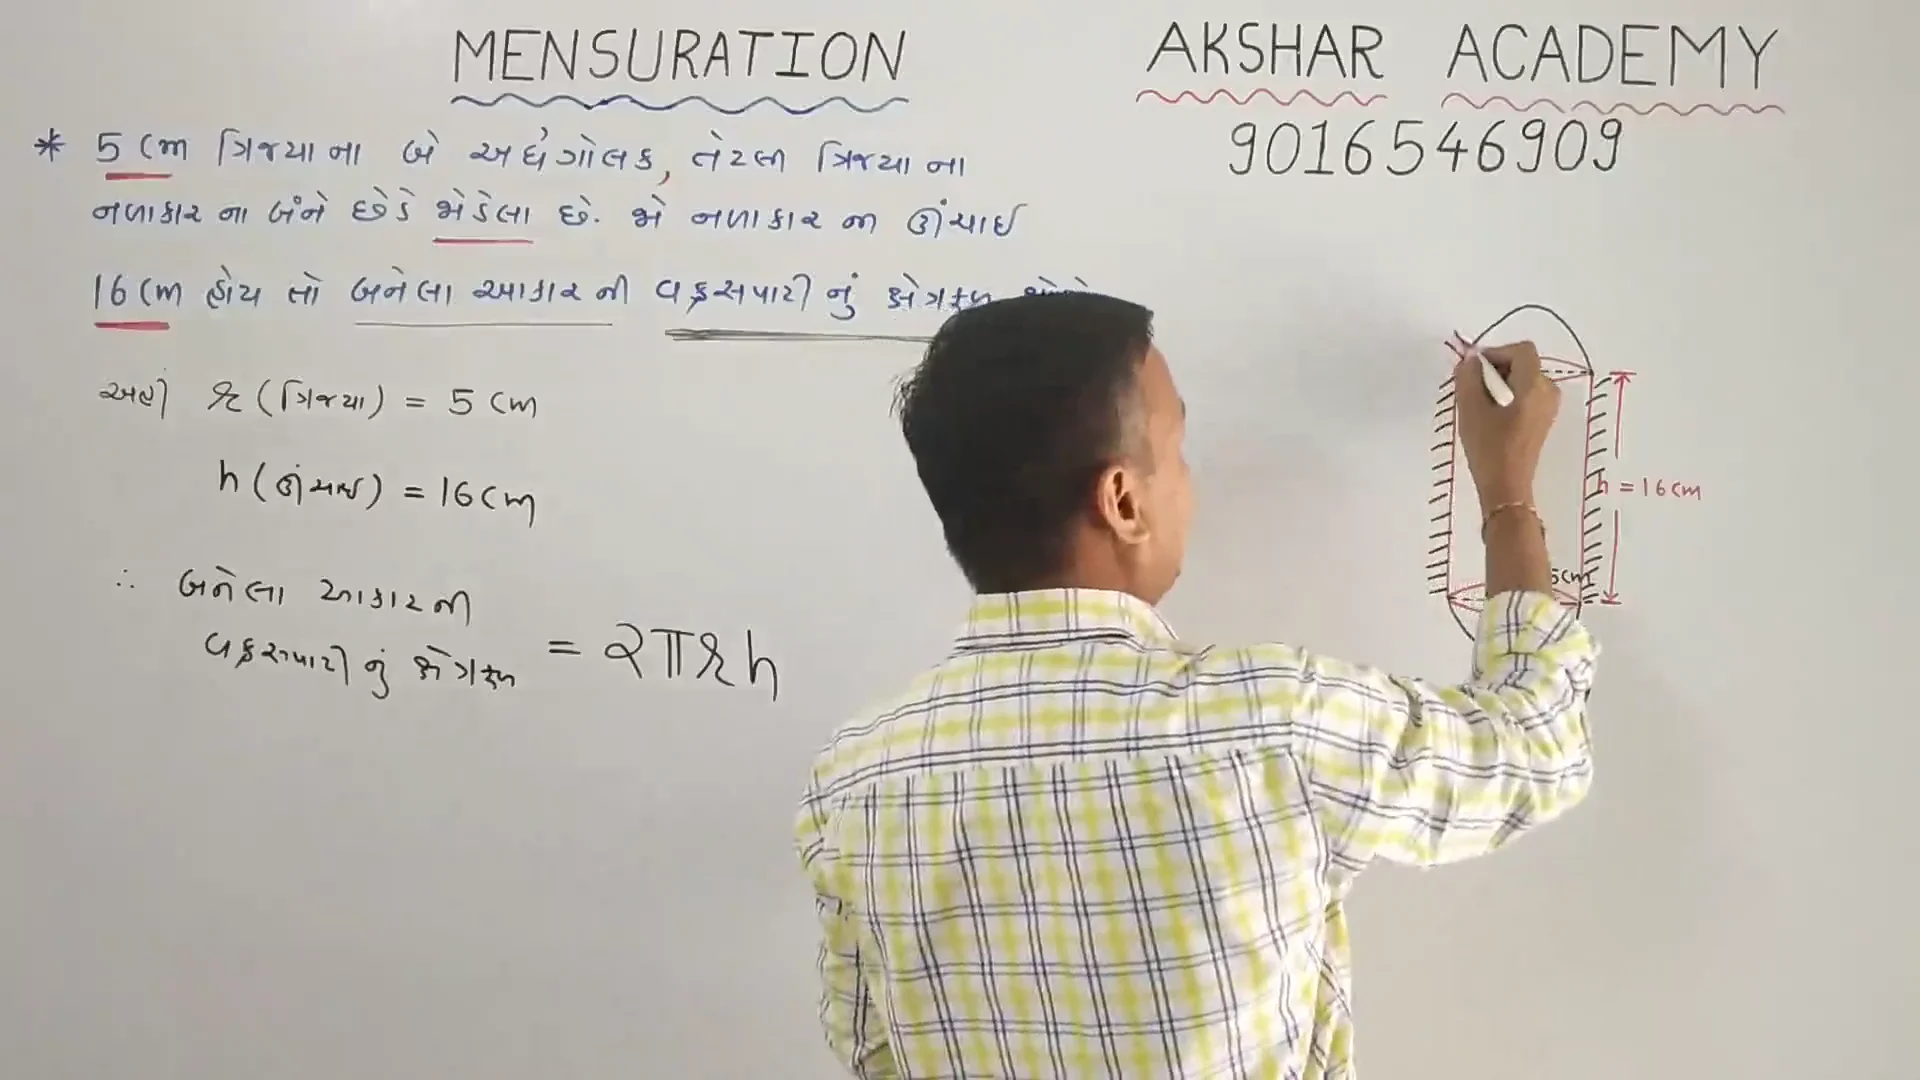 MENSURATION
AKSHAR ACADEMY
9016546909
* 5 cm ત્રિજ્યા ના બે અર્ધગોલક, તેટલી ત્રિજ્યા ના
નળાકાર ના બંને છેડે જોડેલા છે. જો નળાકાર ની ઊંચાઈ
16 cm હોય તો બનેલા આકાર ની વક્રસપાટી નું ક્ષેત્રફળ
અહીં r (ત્રિજ્યા) = 5 cm
h (ઊંચાઈ) = 16 cm
∴ બનેલા આકાર ની
વક્રસપાટી નું ક્ષેત્રફળ = 2πrh
h = 16 cm
5cm